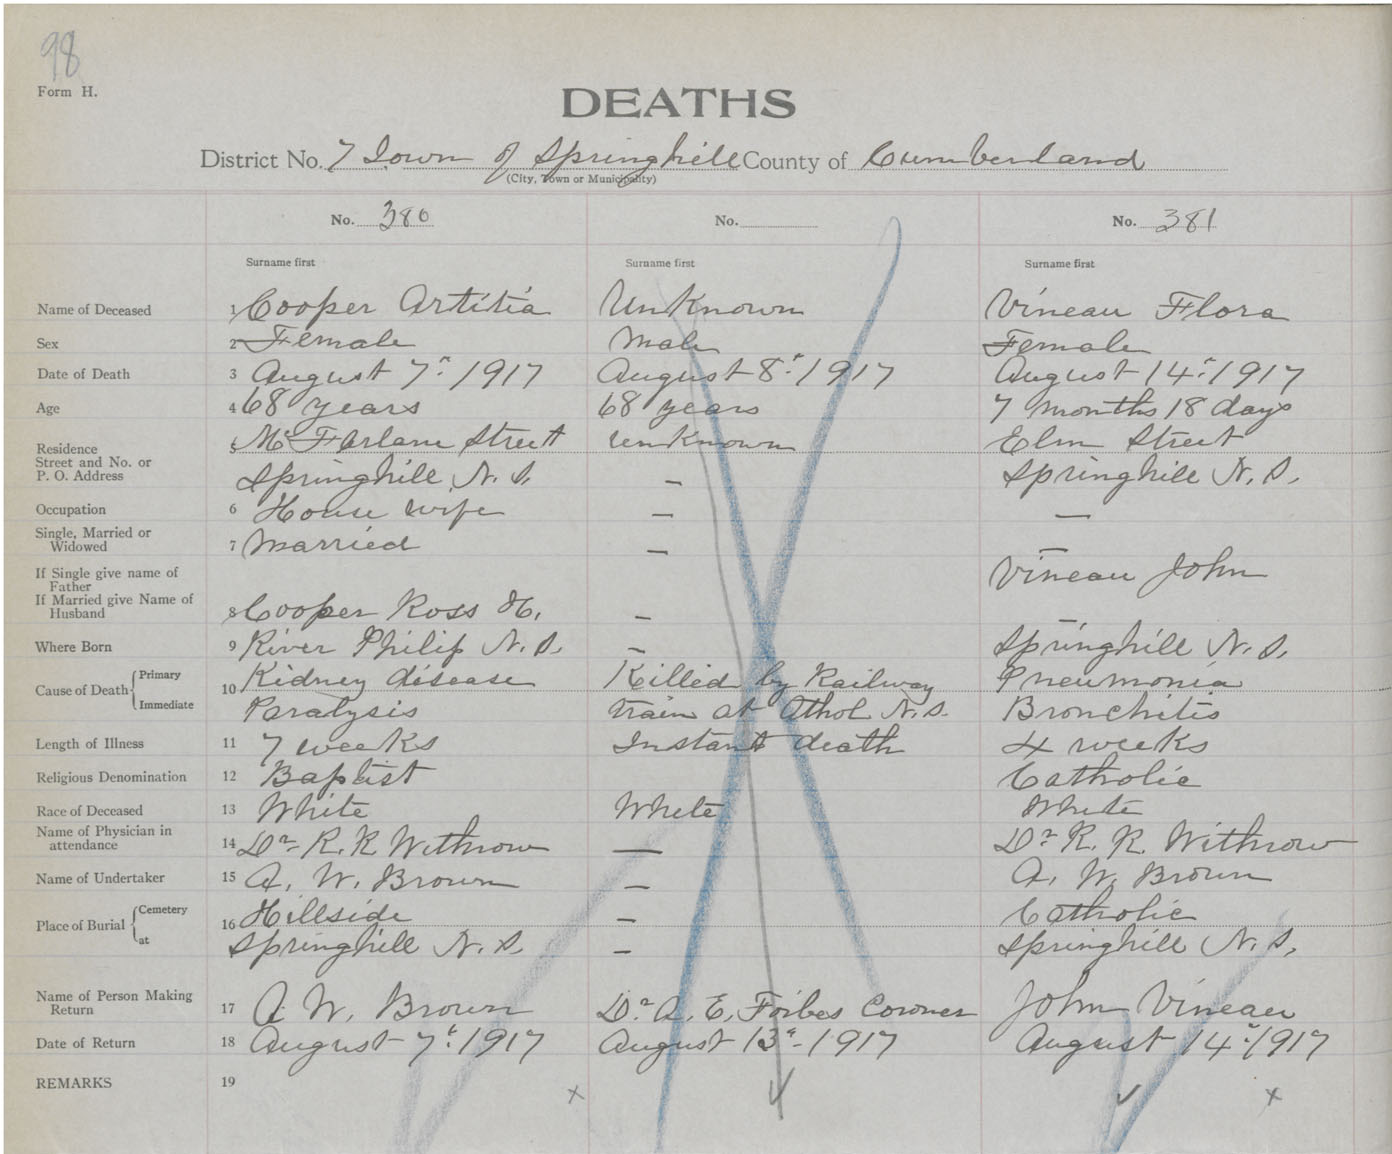 98
Form H.
DEATHS
District No. 7 Town of Springhill County of Cumberland
(City, Town or Municipality)
No. 380 No. No. 381
Surname first Surname first Surname first
Name of Deceased 1 Cooper Artitia Unknown Vineau Flora
Sex 2 Female Male Female
Date of Death 3 August 7th 1917 August 8th 1917 August 14th 1917
Age 4 68 years 68 years 7 months 18 days
Residence 5 McFarlane Street unknown Elm Street
Street and No. or
P. O. Address Springhill N.S. — Springhill N.S.
Occupation 6 House wife — —
Single, Married or
Widowed 7 Married — —
If Single give name of
Father Vineau John
If Married give Name of
Husband 8 Cooper Ross H. — —
Where Born 9 River Philip N.S. — Springhill N.S.
Cause of Death Primary 10 Kidney disease Killed by Railway Pneumonia
Immediate Paralysis train at Athol N.S. Bronchitis
Length of Illness 11 7 weeks Instant death 4 weeks
Religious Denomination 12 Baptist Catholic
Race of Deceased 13 White White White
Name of Physician in
attendance 14 Dr. R. R Withrow — Dr. R. R. Withrow
Name of Undertaker 15 A. W. Brown — A. W. Brown
Place of Burial Cemetery 16 Hillside — Catholic
at Springhill N.S. — Springhill N.S.
Name of Person Making
Return 17 A W. Brown Dr. A. E. Forbes Coroner John Vineau
Date of Return 18 August 7th 1917 August 13th 1917 August 14th 1917
REMARKS 19